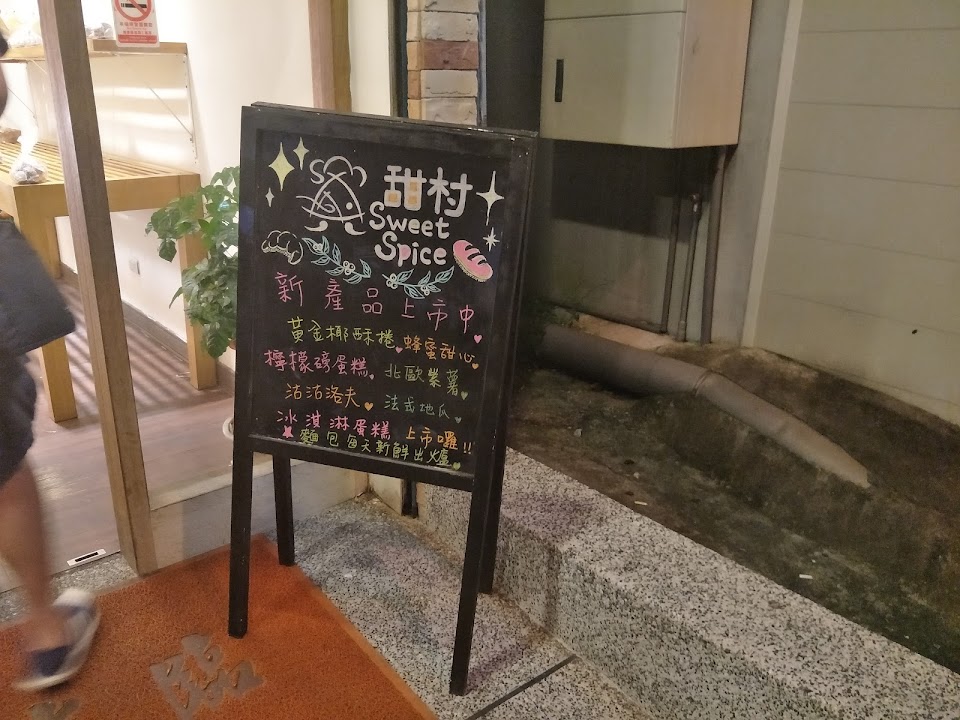 甜村
Sweet
Spice
新產品上市中
黃金椰酥捲 蜂蜜甜心
檸檬磅蛋糕 北歐紫薯
沾沾洛夫 法式地瓜
冰淇淋蛋糕 上市囉!!
麵包每天新鮮出爐
臨